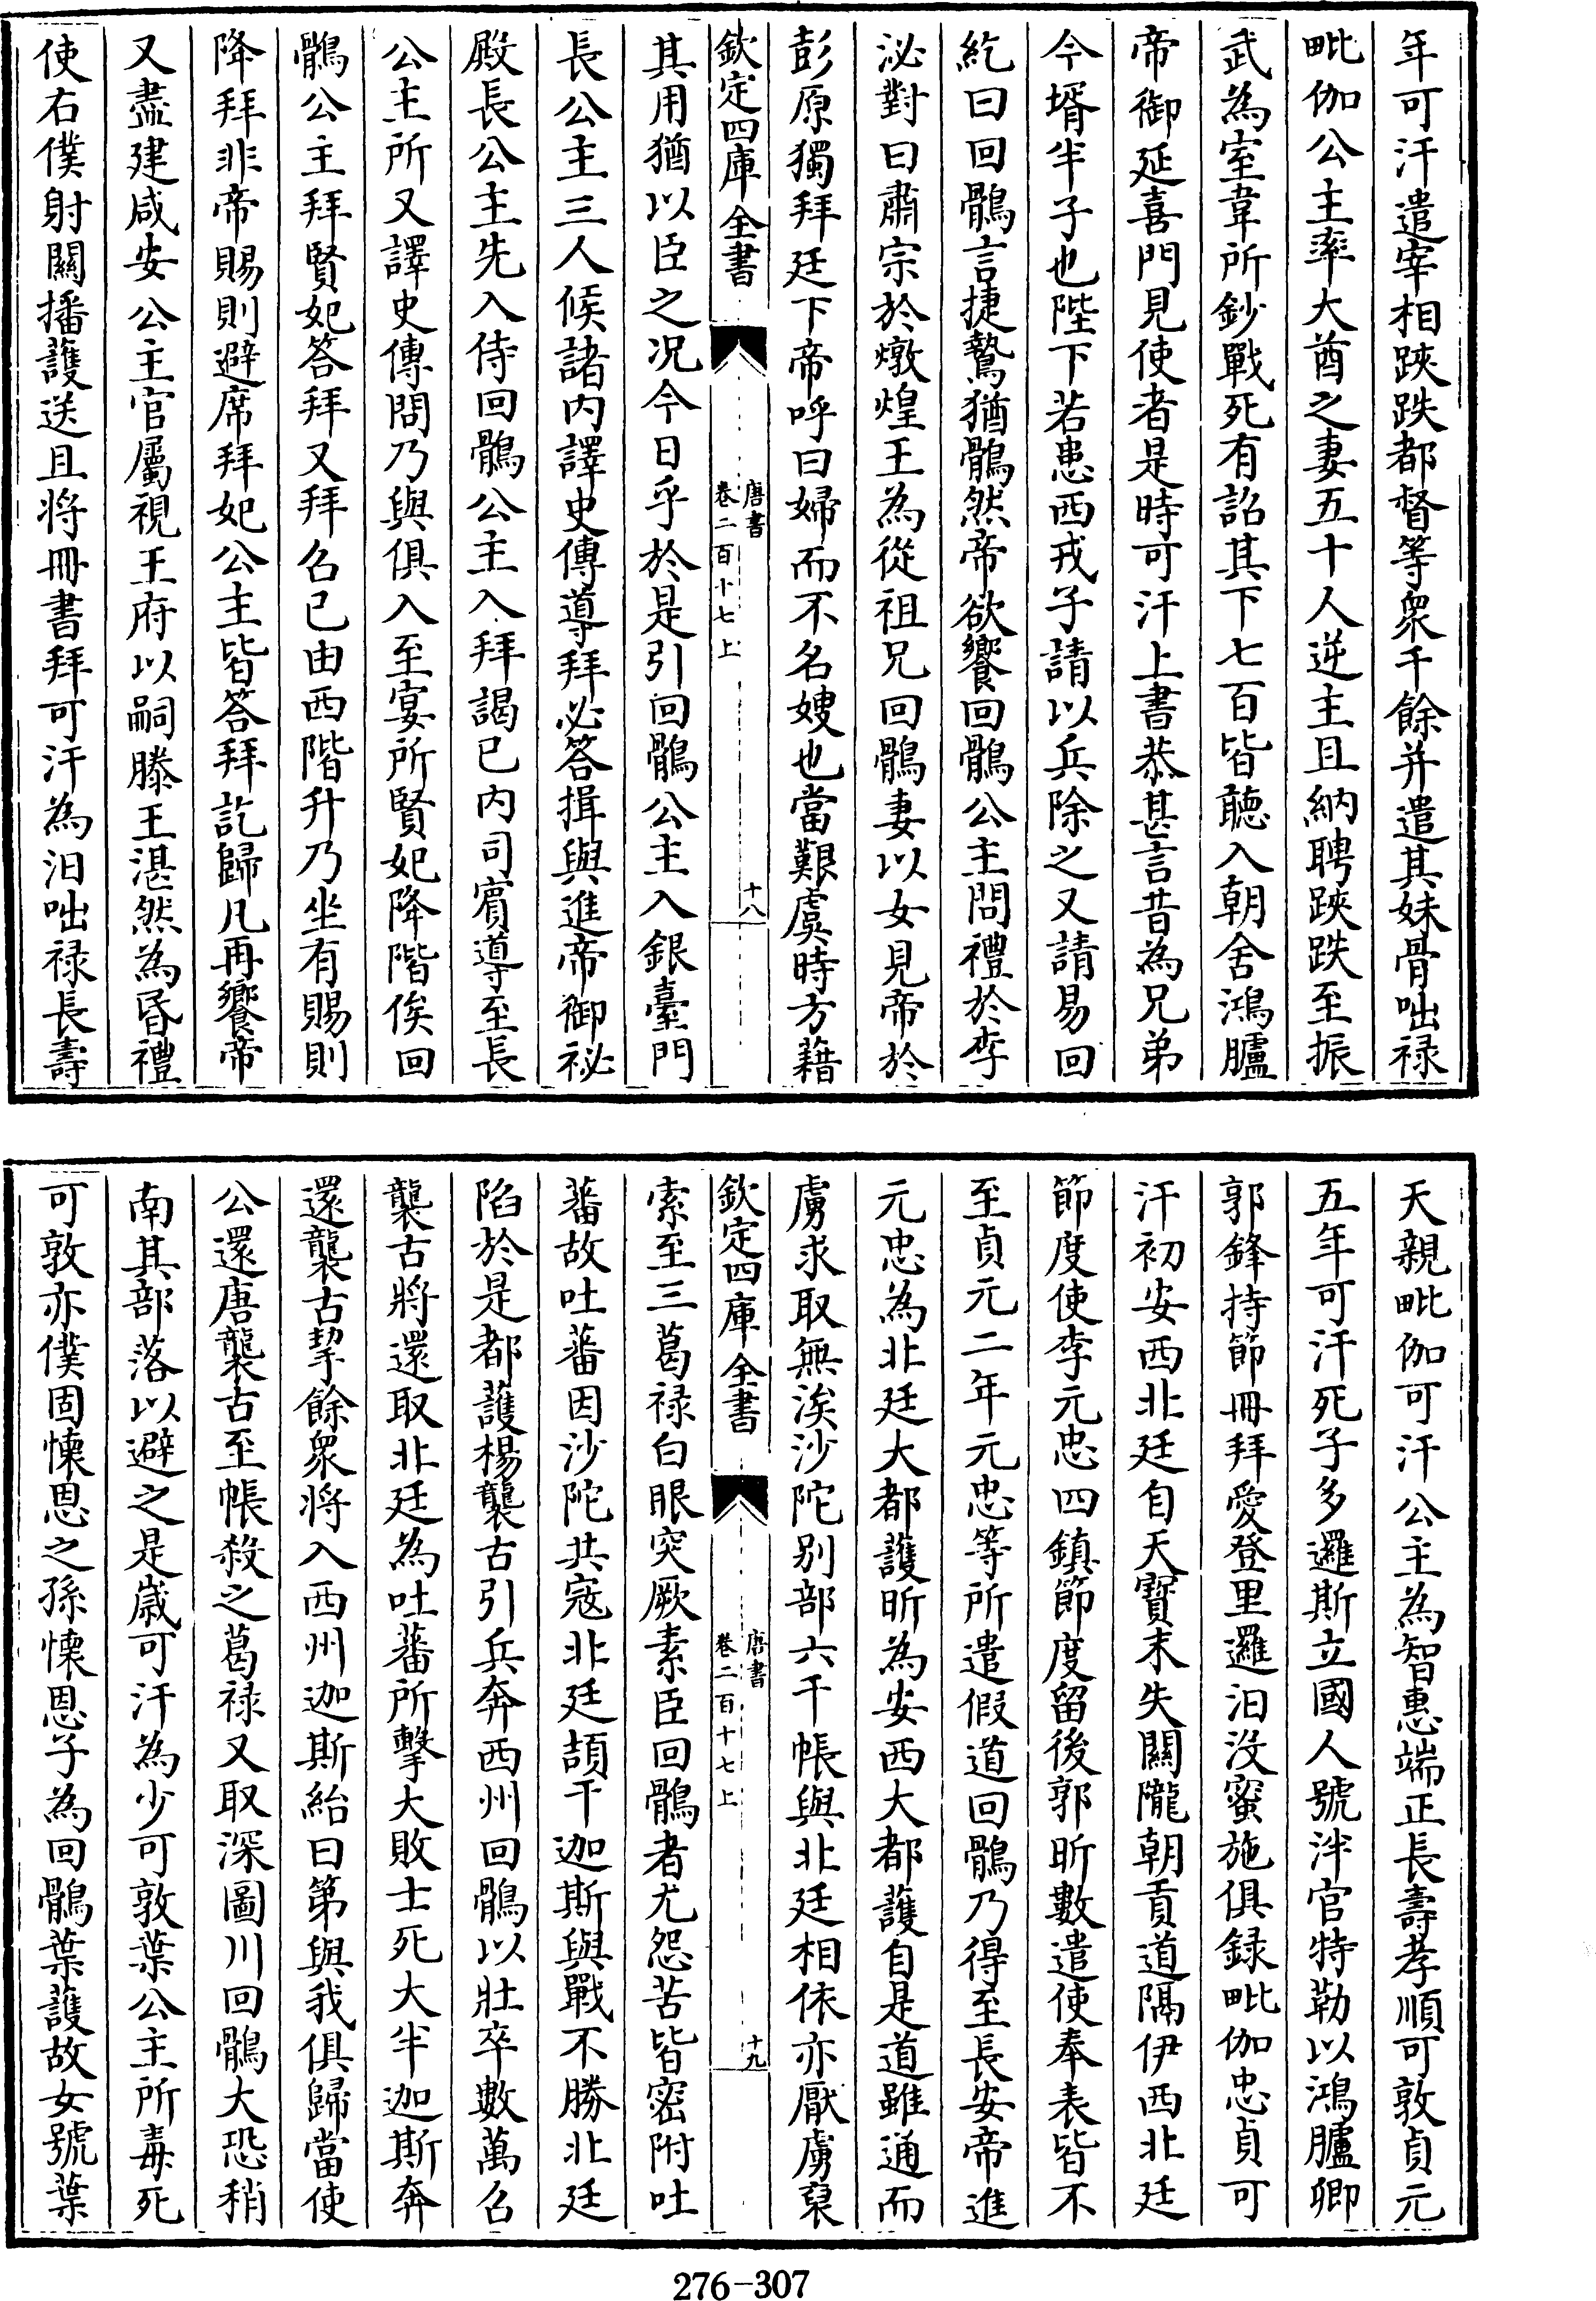 年可汗遣宰相𨁂跌都督等衆千餘并遣其妹骨咄禄
毗伽公主率大酋之妻五十人逆主且納聘𨁂跌至振
武為室韋所鈔戰死有詔其下七百皆聽入朝舍鴻臚
帝御延喜門見使者是時可汗上書恭甚言昔為兄弟
今壻半子也陛下若患西戎子請以兵除之又請易回
紇曰回鶻言捷鷙猶鶻然帝欲饗回鶻公主問禮於李
泌對曰肅宗於燉煌王為從祖兄回鶻妻以女見帝於
彭原獨拜廷下帝呼曰婦而不名嫂也當艱虞時方藉
欽定四庫全書
唐書
卷二百十七上
十八
其用猶以臣之况今日乎於是引回鶻公主入銀臺門
長公主三人候諸内譯史傳導拜必答揖與進帝御祕
殿長公主先入侍回鶻公主入拜謁已内司賓導至長
公主所又譯史傳問乃與俱入至宴所賢妃降階俟回
鶻公主拜賢妃答拜又拜召已由西階升乃坐有賜則
降拜非帝賜則避席拜妃公主皆答拜訖歸凡再饗帝
又盡建咸安公主官屬視王府以嗣滕王湛然為昏禮
使右僕射關播護送且將冊書拜可汗為汨咄禄長壽
天親毗伽可汗公主為智惠端正長壽孝順可敦貞元
五年可汗死子多邏斯立國人號泮官特勒以鴻臚卿
郭鋒持節冊拜愛登里邏汨沒蜜施俱録毗伽忠貞可
汗初安西北廷自天寳末失關隴朝貢道隔伊西北廷
節度使李元忠四鎮節度留後郭昕數遣使奉表皆不
至貞元二年元忠等所遣假道回鶻乃得至長安帝進
元忠為北廷大都護昕為安西大都護自是道雖通而
虜求取無涘沙陀别部六千帳與北廷相依亦厭虜裒
欽定四庫全書
唐書
卷二百十七上
十九
索至三葛禄白眼突厥素臣回鶻者尤怨苦皆密附吐
蕃故吐蕃因沙陀共寇北廷頡干迦斯與戰不勝北廷
陷於是都護楊襲古引兵奔西州回鶻以壯卒數萬召
襲古將還取北廷為吐蕃所擊大敗士死大半迦斯奔
還襲古挈餘衆將入西州迦斯紿曰第與我俱歸當使
公還唐襲古至帳殺之葛禄又取深圖川回鶻大恐稍
南其部落以避之是歲可汗為少可敦葉公主所毒死
可敦亦僕固懐恩之孫懐恩子為回鶻葉護故女號葉
276-307